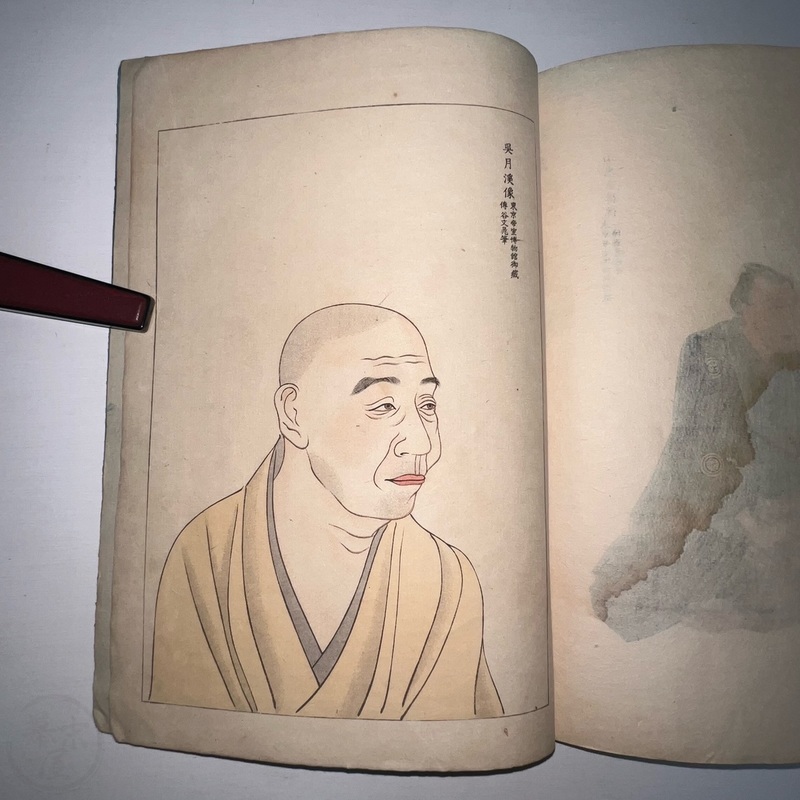 吳月溪像
東京帝室博物館御藏
傳谷文晁筆